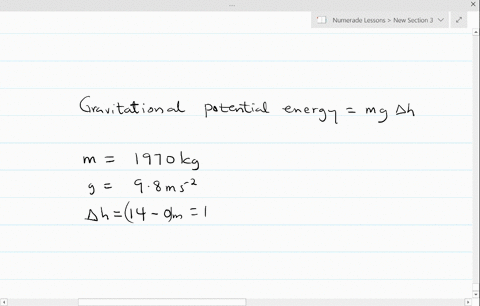 Numerade Lessons > New Section 3
Gravitational potential energy = mg Δh
m = 1970 kg
g = 9.8 ms⁻²
Δh = (14 - 0)m = 1